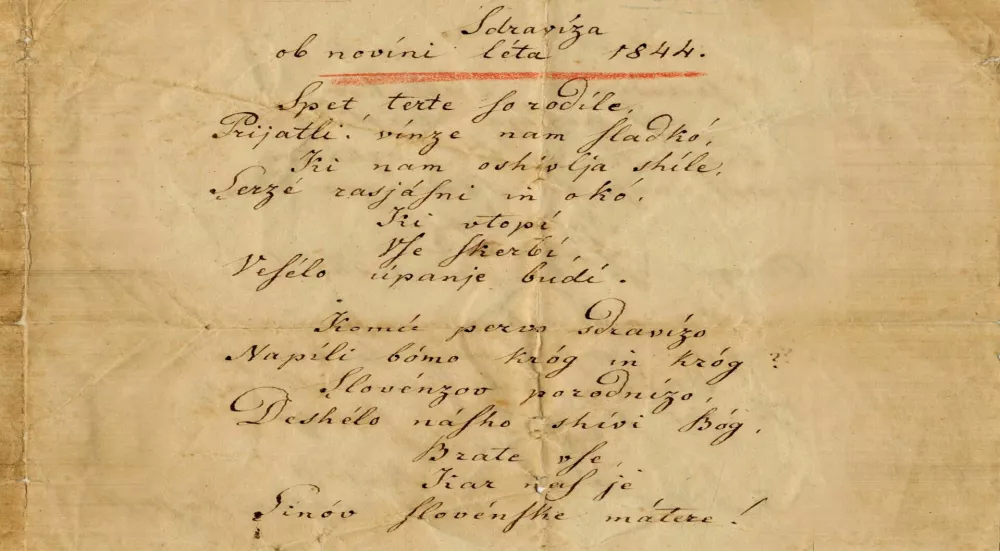 Sdravíza
ob novíni léta 1844.
Spet terte so rodíle,
Prijatli! vínze nam sladkó,
Ki nam oshívlja shíle,
Serzé rasjásni in okó,
Ki vtopí
Vse skerbí,
Vesélo úpanje budí.
Komú pervo sdravízo
Napíli bómo króg in króg?
Slovénzov porodnízo,
Deshélo násho shívi Bóg,
Brate vse,
Kar nas je
Sinóv slovénske mátere!